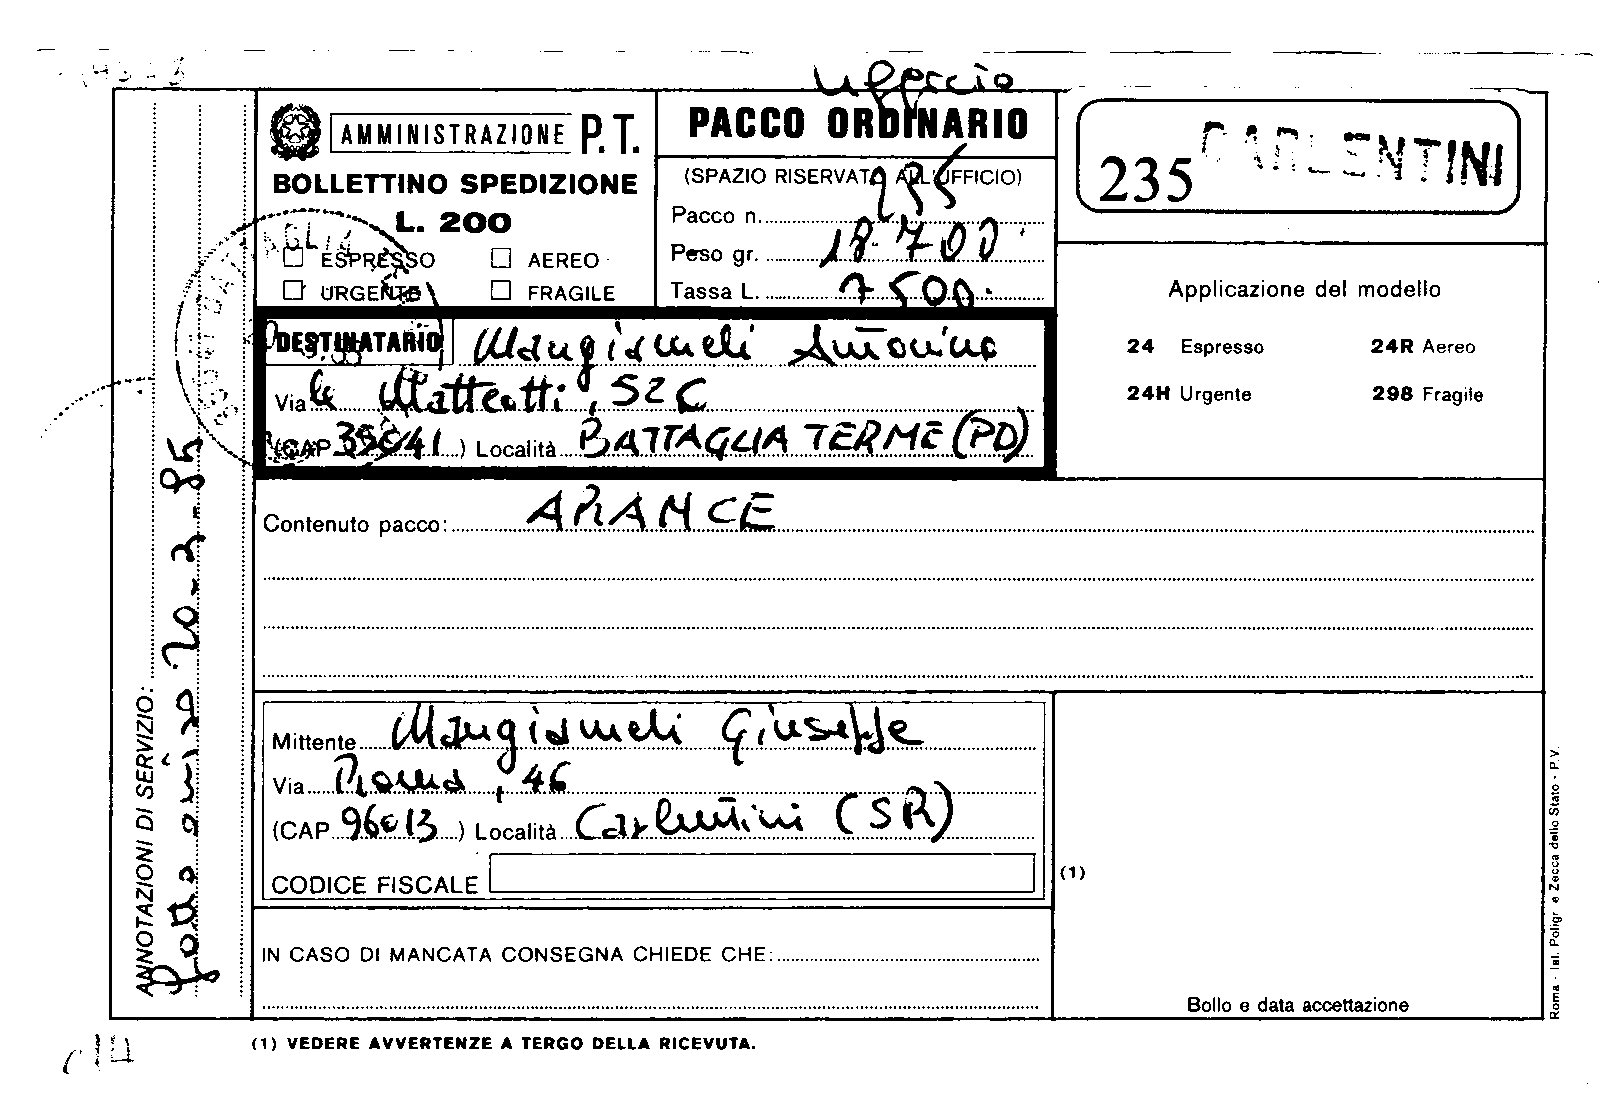 Ufficio
AMMINISTRAZIONE P.T.
BOLLETTINO SPEDIZIONE
L. 200
ESPRESSO AEREO
URGENTE FRAGILE
PACCO ORDINARIO
(SPAZIO RISERVATO ALL'UFFICIO)
Pacco n. 235
Peso gr. 18.700
Tassa L. 7500.
235 CARLENTINI
Applicazione del modello
24 Espresso 24R Aereo
24H Urgente 298 Fragile
DESTINATARIO Mangiameli Antonino
Via le Matteotti, 52 C
(CAP 35041) Località BATTAGLIA TERME (PD)
Contenuto pacco: ARANCE
Mittente Mangiameli Giuseppe
Via Roma, 46
(CAP 96013) Località Carlentini (SR)
CODICE FISCALE
(1)
IN CASO DI MANCATA CONSEGNA CHIEDE CHE:
Bollo e data accettazione
(1) VEDERE AVVERTENZE A TERGO DELLA RICEVUTA.
ANNOTAZIONI DI SERVIZIO:
fatto avviso 20-3-85
Roma - Ist. Poligr. e Zecca dello Stato - P.V.